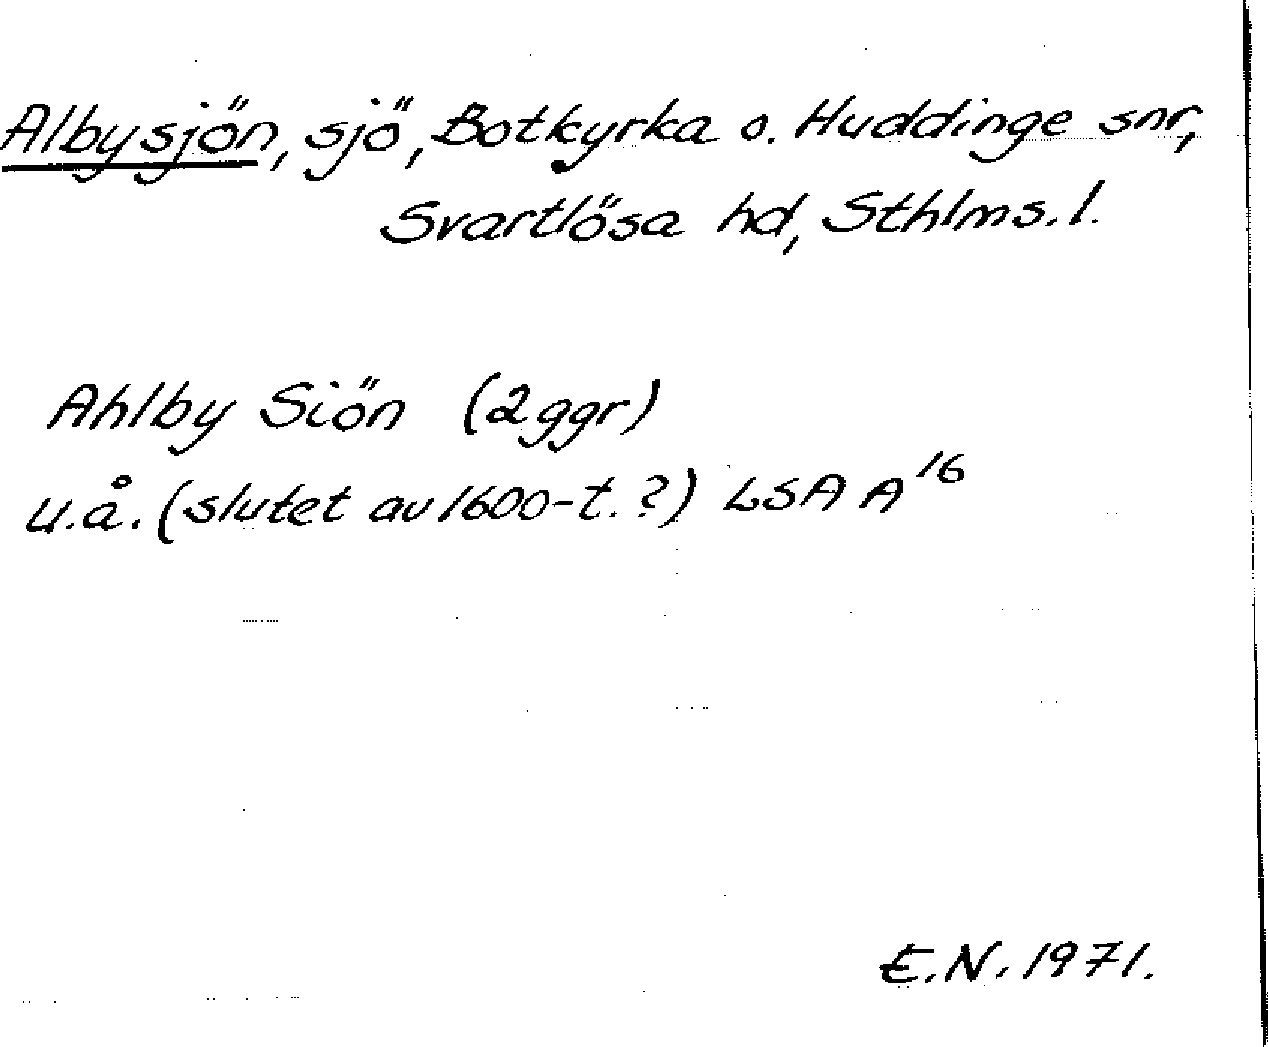 Albysjön, sjö, Botkyrka o. Huddinge snr,
Svartlösa hd, Sthlms. l.
Ahlby Siön (2 ggr)
u.å. (slutet av 1600-t. ?) LSA A¹⁶
E.N. 1971.